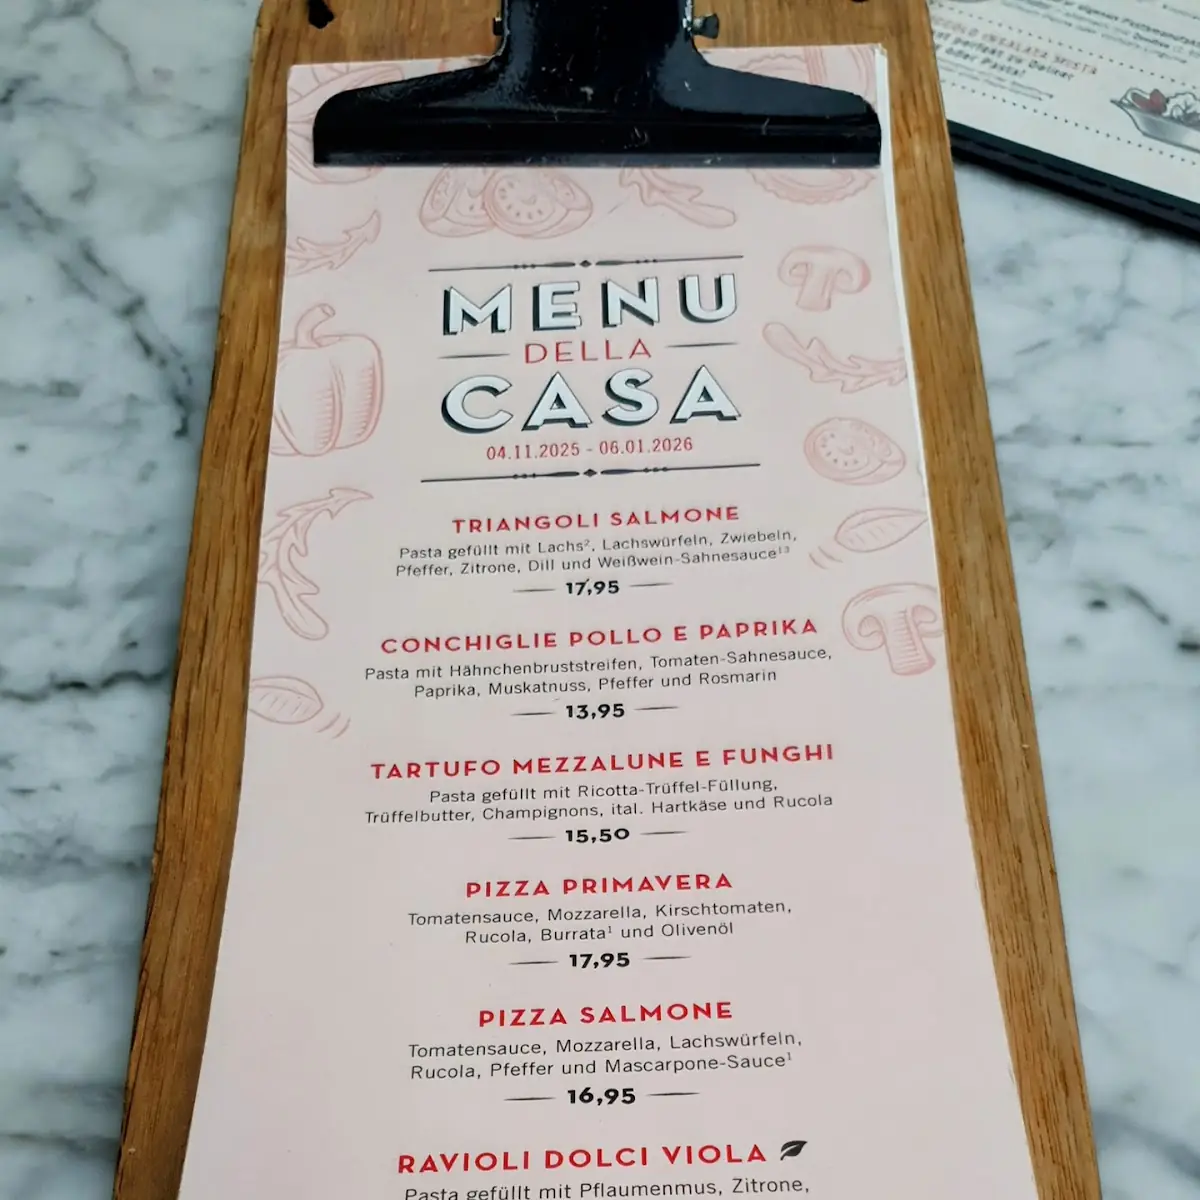 MENU
DELLA
CASA
04.11.2025 - 06.01.2026
TRIANGOLI SALMONE
Pasta gefüllt mit Lachs², Lachswürfeln, Zwiebeln,
Pfeffer, Zitrone, Dill und Weißwein-Sahnesauce¹³
17,95
CONCHIGLIE POLLO E PAPRIKA
Pasta mit Hähnchenbruststreifen, Tomaten-Sahnesauce,
Paprika, Muskatnuss, Pfeffer und Rosmarin
13,95
TARTUFO MEZZALUNE E FUNGHI
Pasta gefüllt mit Ricotta-Trüffel-Füllung,
Trüffelbutter, Champignons, ital. Hartkäse und Rucola
15,50
PIZZA PRIMAVERA
Tomatensauce, Mozzarella, Kirschtomaten,
Rucola, Burrata¹ und Olivenöl
17,95
PIZZA SALMONE
Tomatensauce, Mozzarella, Lachswürfeln,
Rucola, Pfeffer und Mascarpone-Sauce¹
16,95
RAVIOLI DOLCI VIOLA
Pasta gefüllt mit Pflaumenmus, Zitrone,